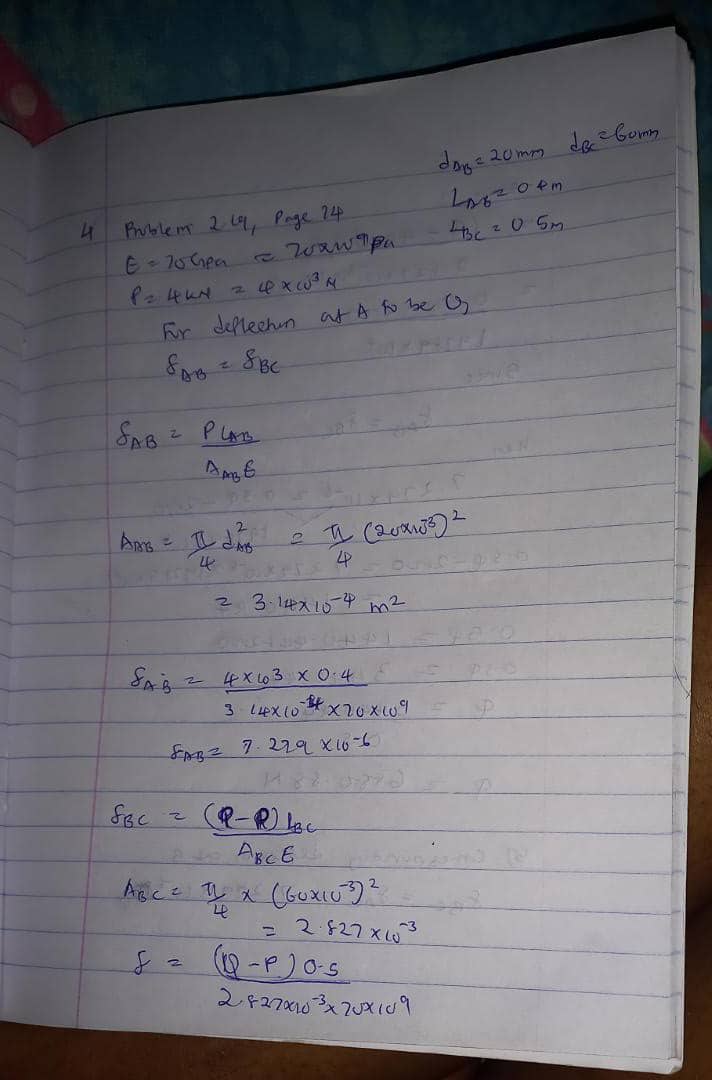 d_AB = 20mm d_BC = 60mm
L_AB = 0.4m
4 Problem 2.19, Page 74
L_BC = 0.5m
E = 70Gpa = 70x10^9 pa
P = 4kN = 4x10^3 N
For deflection at A to be 0,
δ_AB = δ_BC
δ_AB = P L_AB / A_AB E
A_AB = π/4 d_AB^2 = π/4 (20x10^-3)^2
= 3.14x10^-4 m2
δ_AB = 4x10^3 x 0.4 / 3.14x10^-4 x 70x10^9
δ_AB = 7.279 x10^-6
δ_BC = (Q-P) L_BC / A_BC E
A_BC = π/4 x (60x10^-3)^2
= 2.827x10^-3
δ = (Q-P) 0.5 / 2.827x10^-3 x 70x10^9